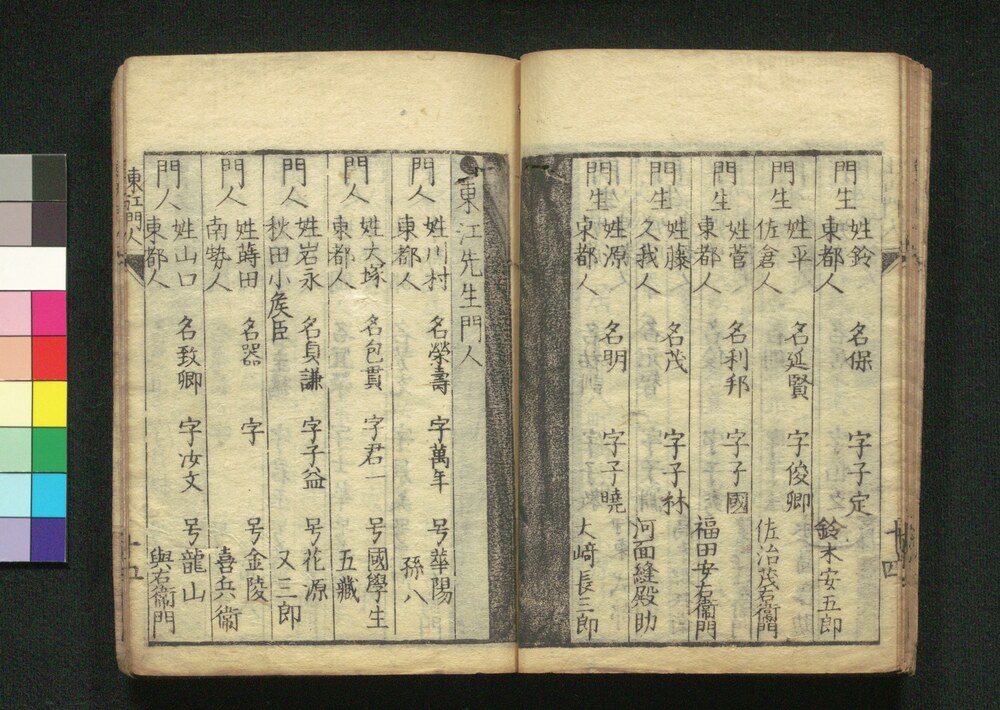 門生 姓鈴 名保 字子定
東都人 鈴木安五郎
門生 姓平 名延賢 字俊卿
佐倉人 佐治茂右衞門
門生 姓菅 名利邦 字子國
東都人 福田安右衞門
門生 姓藤 名茂 字子林
久我人 河面縫殿助
門生 姓源 名明 字子曉
東都人 大﨑長三郎
十四
東江先生門人
門人 姓川村 名榮壽 字萬年 号華陽
東都人 孫八
門人 姓大塚 名包貫 字君一 号國學生
東都人 五藏
門人 姓岩永 名貞謙 字子益 号花源
秋田小矦臣 又三郎
門人 姓蒔田 名器 字 号金陵
南勢人 喜兵衞
門人 姓山口 名致卿 字汝文 号龍山
東都人 與右衞門
東江門人
十五